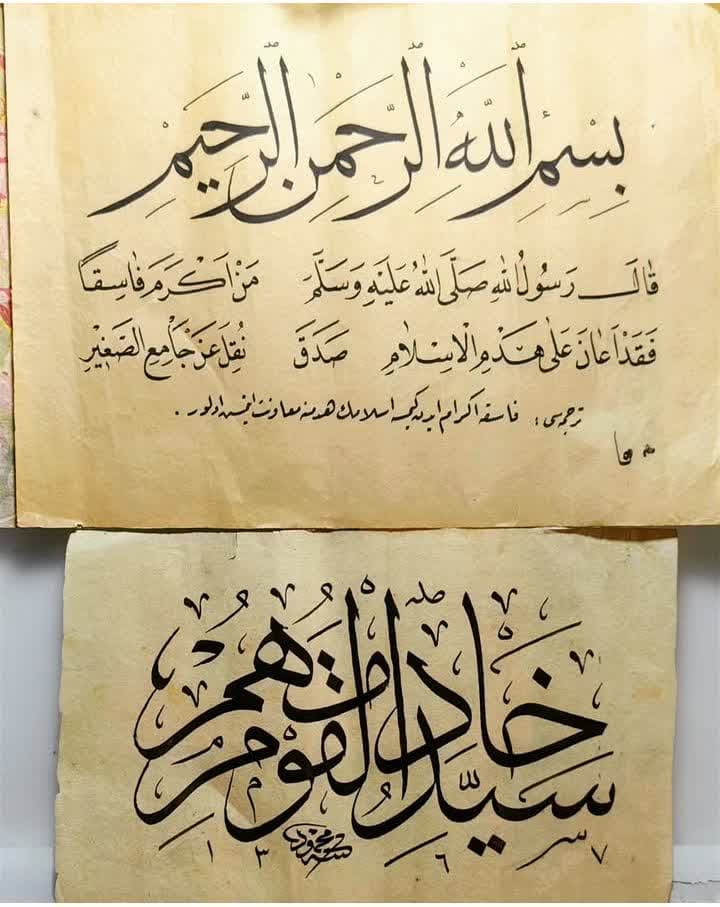 بِسْمِ اللهِ الرَّحْمٰنِ الرَّحِيمِ
قَالَ رَسُولُ اللهِ صَلَّى اللهُ عَلَيْهِ وَسَلَّمَ مَنْ اَكْرَمَ فَاسِقاً
فَقَدْ اَعَانَ عَلٰى هَدْمِ الْاِسْلَامِ صَدَقَ نُقِلَ عَنْ جَامِعِ الصَّغِيْرِ
ترجمه سی : فاسقه اكرام ايدن كيمسه اسلامك هدمنه معاونت ايتمش اولور .
سَيِّدُ الْقَوْمِ خَادِمُهُمْ
محمود ١٣٦٧